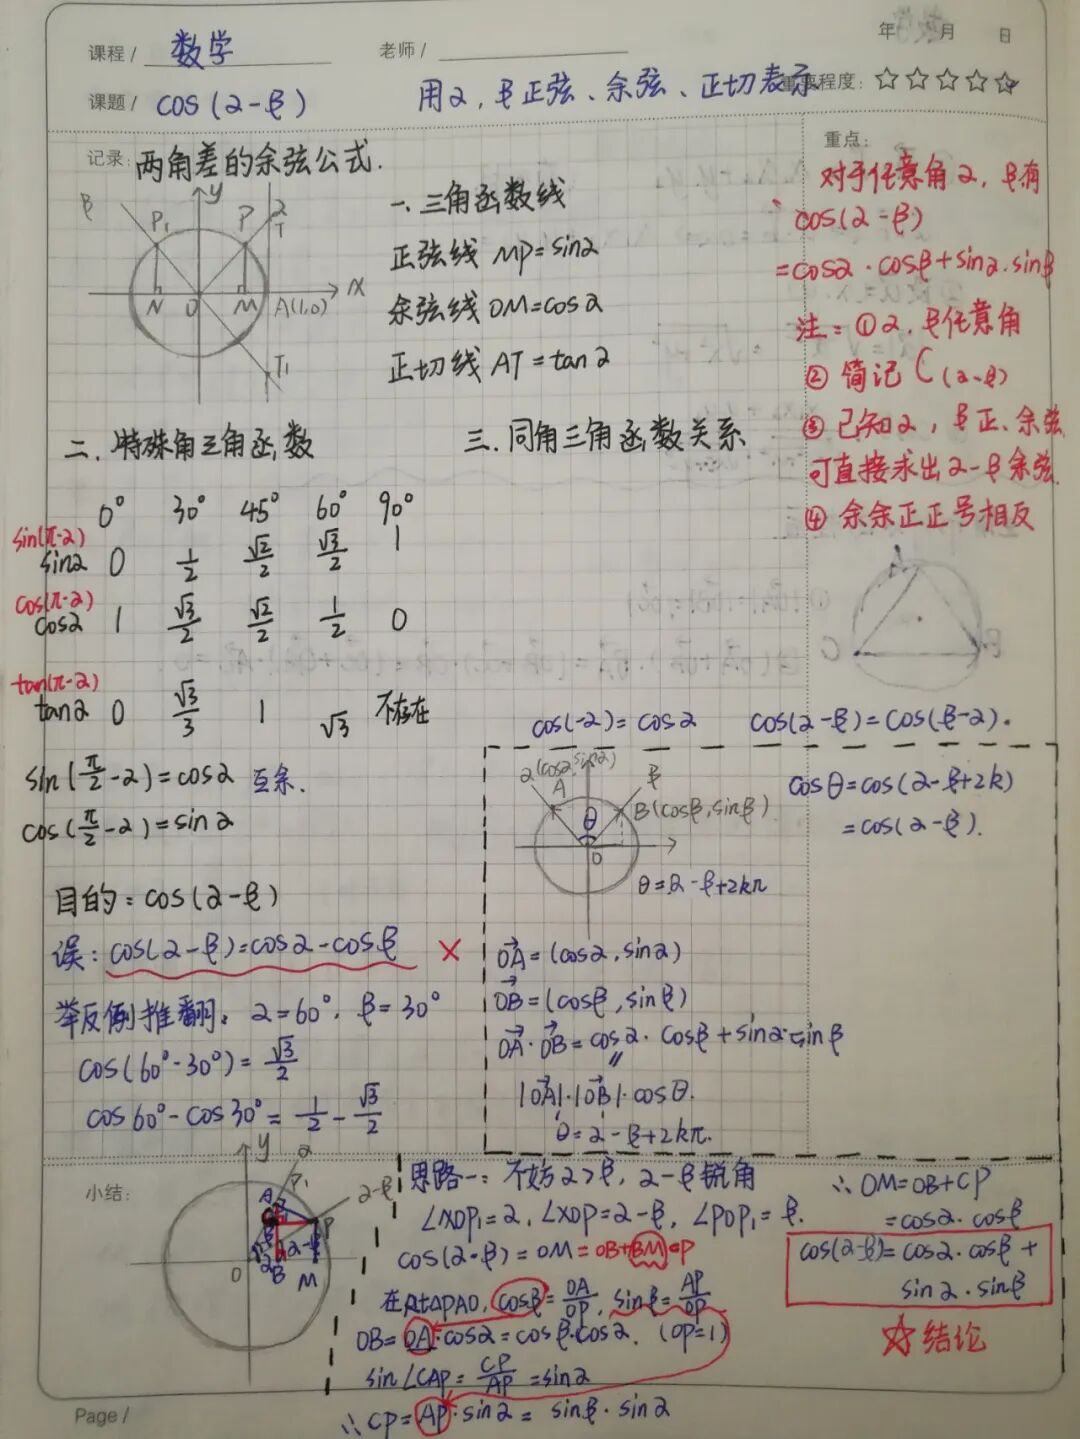 年 月 日
课程/ 数学 老师/
课题/ cos(α-β) 用α,β正弦、余弦、正切表示 重要程度:☆☆☆☆☆
记录: 两角差的余弦公式.
β P₁ y P α T
N O M A(1,0) x
T₁
一.三角函数线
正弦线 MP=sinα
余弦线 OM=cosα
正切线 AT=tanα
二.特殊角三角函数
0° 30° 45° 60° 90°
sin(π-α)
sinα 0 1/2 √2/2 √3/2 1
cos(π-α)
cosα 1 √3/2 √2/2 1/2 0
tan(π-α)
tanα 0 √3/3 1 √3 不存在
sin(π/2-α)=cosα 互余.
cos(π/2-α)=sinα
目的:cos(α-β)
误:cos(α-β)=cosα-cosβ ×
举反例推翻:α=60°,β=30°
cos(60°-30°)=√3/2
cos60°-cos30°=1/2-√3/2
三.同角三角函数关系
cos(-α)=cosα cos(α-β)=cos(β-α).
α(cosα,sinα) β
A B(cosβ,sinβ)
θ
O
θ=α-β+2kπ
cosθ=cos(α-β+2k)
=cos(α-β).
OA→=(cosα,sinα)
OB→=(cosβ,sinβ)
OA→·OB→=cosα·cosβ+sinα·sinβ
|OA→|·|OB→|·cosθ.
θ=α-β+2kπ.
重点:
对于任意角α,β有
cos(α-β)
=cosα·cosβ+sinα·sinβ
注:①α,β任意角
②简记C(α-β)
③已知α,β正、余弦
可直接求出α-β余弦.
④余余正正号相反
A
C B
小结:
y α
A P₁ α-β
C P
O B M
思路一:不妨α>β,α-β锐角
∠XOP₁=α,∠XOP=α-β,∠POP₁=β.
cos(α-β)=OM=OB+BM CP
在Rt△PAO,cosβ=OA/OP,sinβ=AP/OP
OB=OA·cosα=cosβ·cosα. (OP=1)
sin∠CAP=CP/AP=sinα
∴CP=AP·sinα=sinβ·sinα
∴OM=OB+CP
=cosα·cosβ
cos(α-β)=cosα·cosβ+
sinα·sinβ
☆结论
Page/